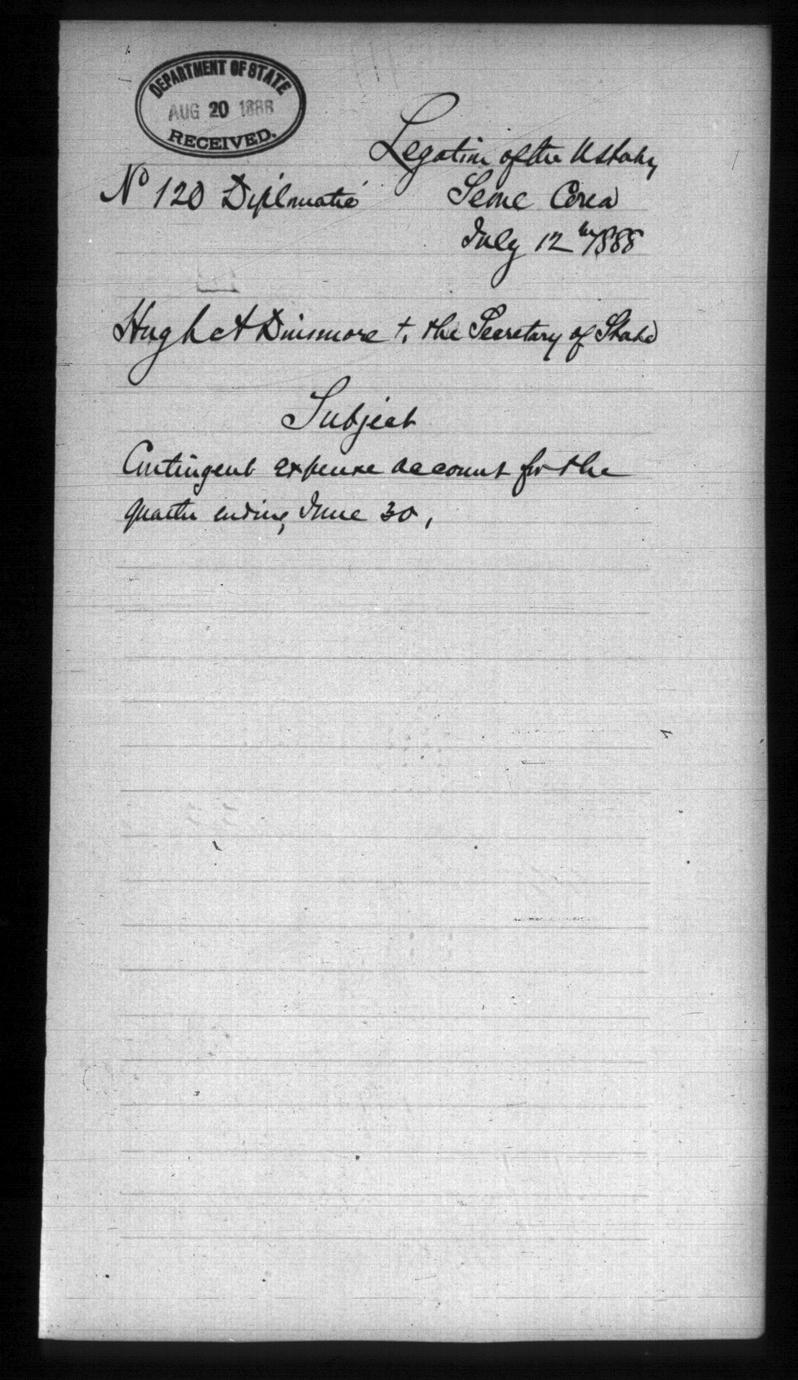 DEPARTMENT OF STATE
AUG 20 1888
RECEIVED.
Legation of the U States
No 120 Diplomatic Seoul Corea
July 12th/888
Hugh A Dinsmore to the Secretary of State
Subject
Contingent expense account for the
quarter ending June 30,